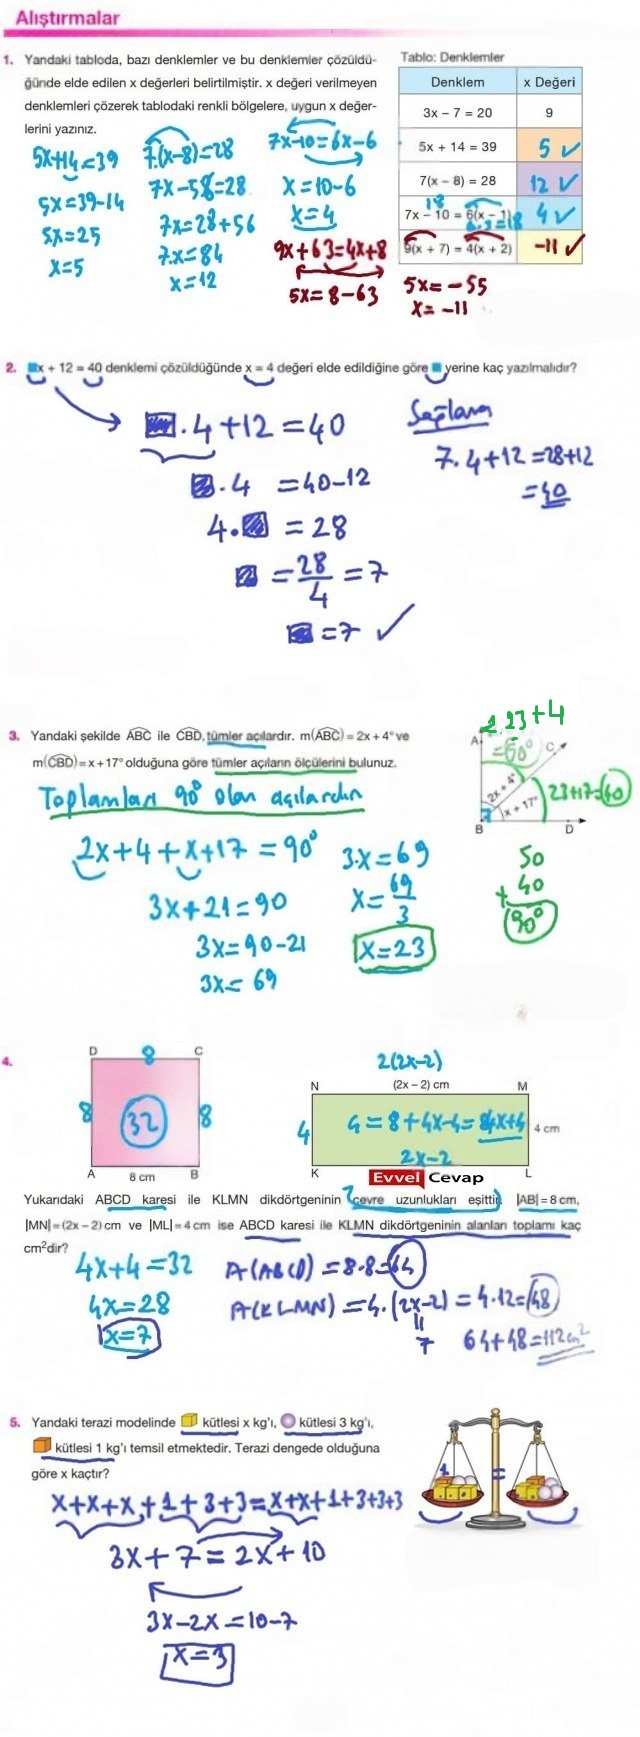 Alıştırmalar
1. Yandaki tabloda, bazı denklemler ve bu denklemler çözüldü-
ğünde elde edilen x değerleri belirtilmiştir. x değeri verilmeyen
denklemleri çözerek tablodaki renkli bölgelere, uygun x değer-
lerini yazınız.
Tablo: Denklemler
Denklem x Değeri
3x – 7 = 20 9
5x + 14 = 39 5 ✓
7(x – 8) = 28 12 ✓
7x – 10 = 6(x – 1) 4 ✓
9(x + 7) = 4(x + 2) -11 ✓
18
6.3=18
5x+14=39
5x=39-14
5x=25
x=5
7.(x-8)=28
7x-56=28
7x=28+56
7.x=84
x=12
7x-10=6x-6
x=10-6
x=4
9x+63=4x+8
5x=8-63
5x=-55
x=-11
2. ■x + 12 = 40 denklemi çözüldüğünde x = 4 değeri elde edildiğine göre ■ yerine kaç yazılmalıdır?
■.4+12=40
■.4 =40-12
4.■ =28
■ =28/4=7
■=7 ✓
Sağlama
7.4+12=28+12
=40
3. Yandaki şekilde ABC ile CBD, tümler açılardır. m(ABC) = 2x + 4° ve
m(CBD) = x + 17° olduğuna göre tümler açıların ölçülerini bulunuz.
Toplamları 90° olan açılardır
2x+4+x+17=90°
3x+21=90
3x=90-21
3x=69
3.x=69
x=69/3
x=23
2.23+4
=50°
A
C
2x + 4°
x + 17°
23+17=40
B D
50
+ 40
90°
4.
D 8 C
8 32 8
A 8 cm B
2(2x-2)
N (2x – 2) cm M
4 Ç=8+4x-4=4x+4 4 cm
2x-2
K L
Evvel Cevap
Yukarıdaki ABCD karesi ile KLMN dikdörtgeninin çevre uzunlukları eşittir. |AB| = 8 cm,
|MN| = (2x – 2) cm ve |ML| = 4 cm ise ABCD karesi ile KLMN dikdörtgeninin alanları toplamı kaç
cm²dir?
4x+4=32
4x=28
x=7
A(ABCD)=8.8=64
A(KLMN)=4.(2x-2)=4.12=48
7
64+48=112cm²
5. Yandaki terazi modelinde kütlesi x kg'ı, kütlesi 3 kg'ı,
kütlesi 1 kg'ı temsil etmektedir. Terazi dengede olduğuna
göre x kaçtır?
x+x+x+1+3+3=x+x+1+3+3+3
3x+7=2x+10
3x-2x=10-7
x=3
1 =